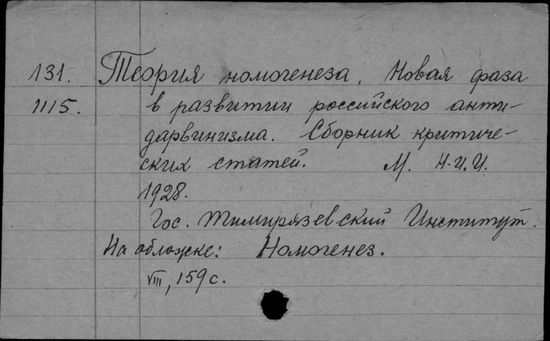 131. Теория номогенеза. Новая фаза
1115. в развитии российского анти-
дарвинизма. Сборник критиче-
ских статей. М. Н-И.И.
1928.
Гос. Тимирязевский Институт.
На обложке: Номогенез.
VIII, 159 с.